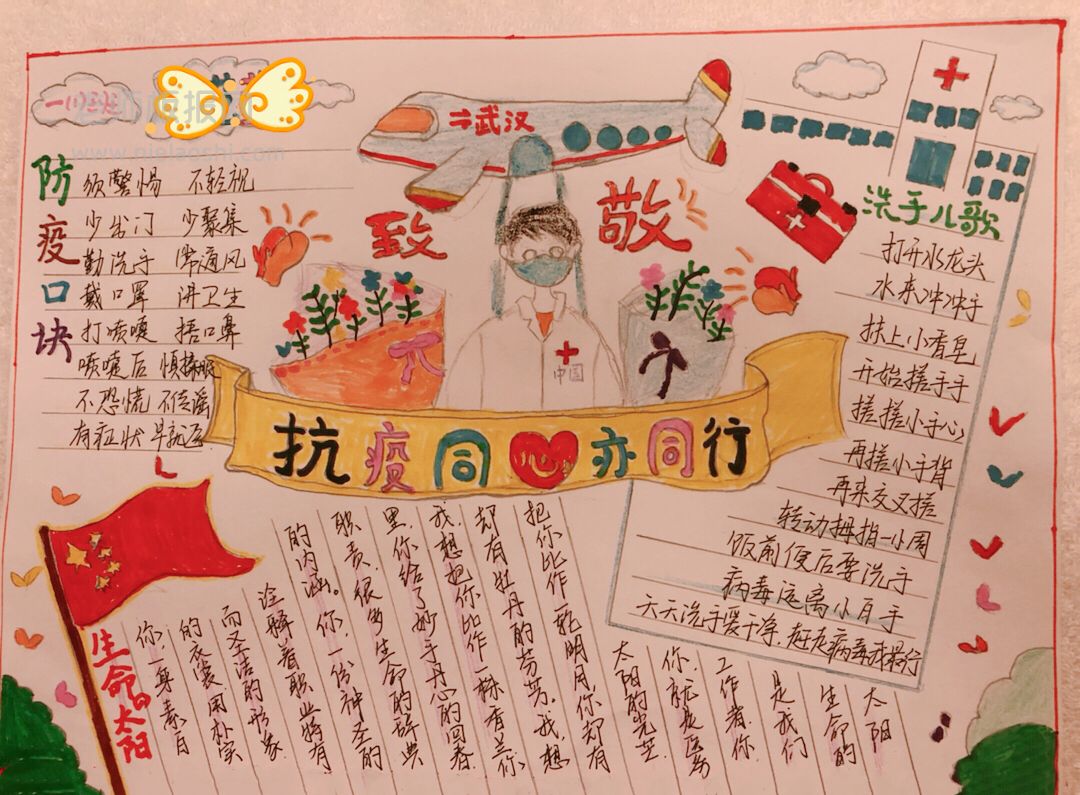 ⇒武汉
致敬
中国
抗疫同心亦同行
防疫口块
须警惕 不轻视
少出门 少聚集
勤洗手 常通风
戴口罩 讲卫生
打喷嚏 捂口鼻
喷嚏后 慎揉眼
不恐慌 不传谣
有症状 早就医
洗手儿歌
打开水龙头
水来冲冲手
抹上小香皂
开始搓手手
搓搓小手心
再搓小手背
再来交叉搓
转动拇指一小周
饭前便后要洗手
病毒远离小月手
天天洗手爱干净,赶走病毒我最行
生命的太阳
你一身素白
的衣裳,用朴实
而圣洁的形象
诠释着职业特有
的内涵。你,一份神圣的
职责,很多生命的辞典
里,你给了妙手丹心的回春
我,想把你比作一株香兰你
却有牡丹的芬芳。我,想
把你比作一轮明月你却有
太阳的光芒
你,就是医务
工作者,你
是我们
生命的
太阳
www.njelaoshi.com